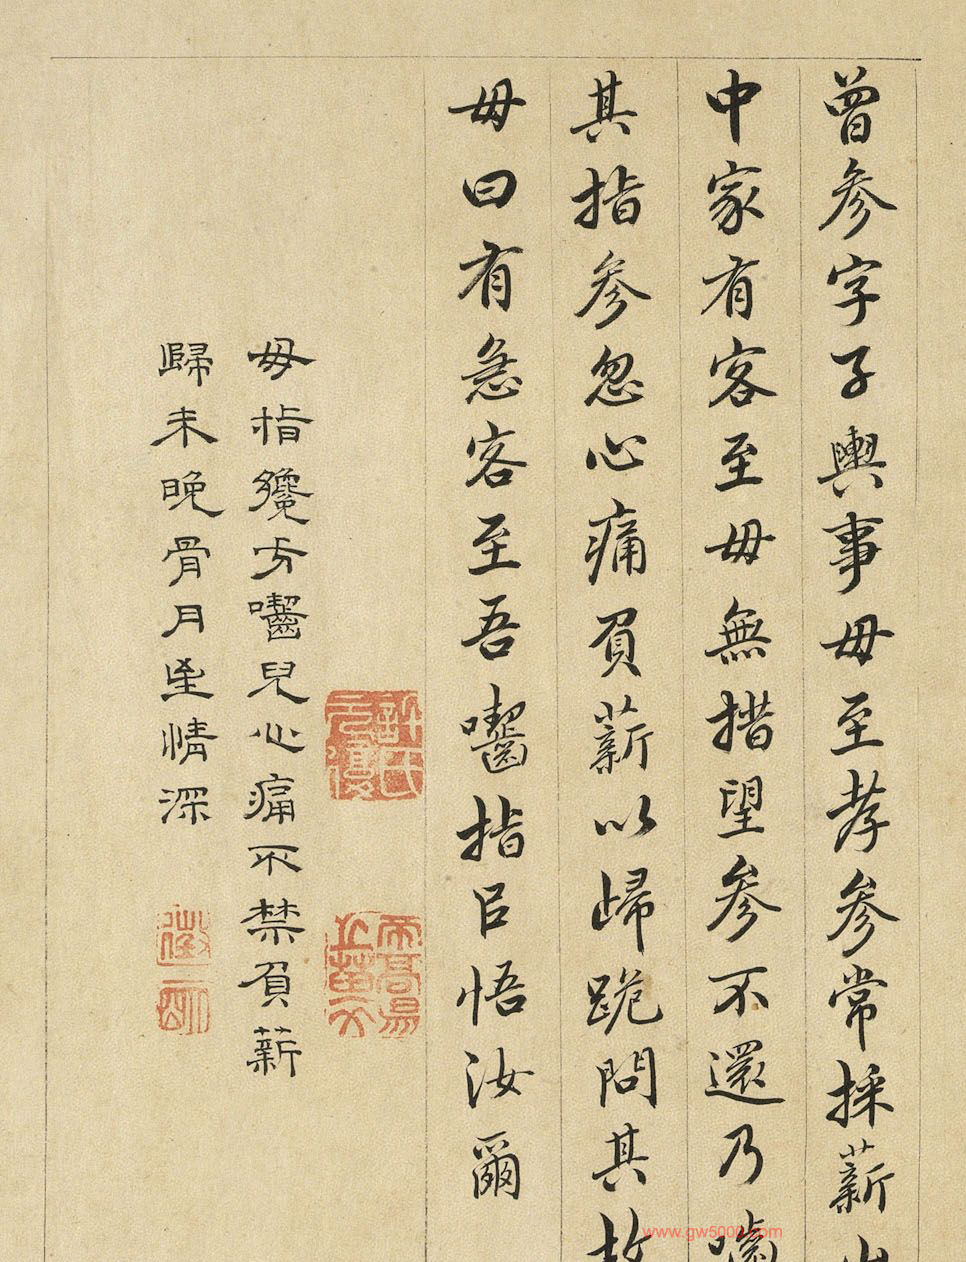 曾參字子輿事母至孝參常採薪山
中家有客至母無措望參不還乃嚙
其指參忽心痛負薪以歸跪問其故
母曰有急客至吾嚙指以悟汝爾
母指纔方嚙兒心痛不禁負薪
歸未晚骨月至情深
www.gw5000.com